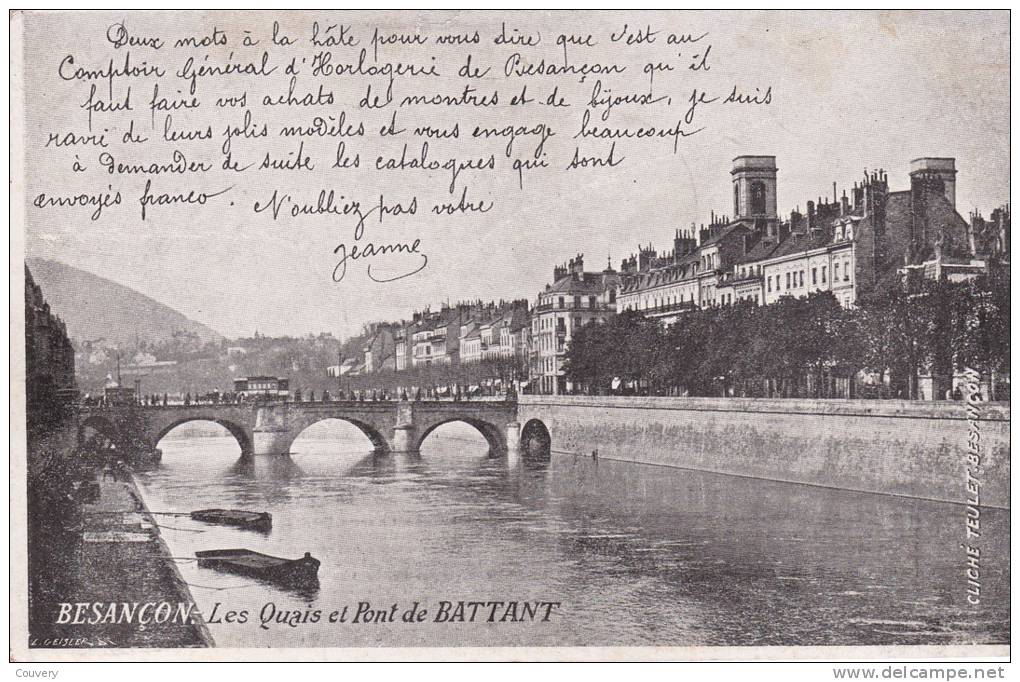 Deux mots à la hâte pour vous dire que c'est au
Comptoir Général d'Horlogerie de Besançon qu'il
faut faire vos achats de montres et de bijoux, je suis
ravie de leurs jolis modèles et vous engage beaucoup
à demander de suite les catalogues qui sont
envoyés franco. N'oubliez pas votre
Jeanne
CLICHÉ TEULET-BESANÇON
BESANÇON.- Les Quais et Pont de BATTANT
L. GEISLER
Couvery
www.delcampe.net